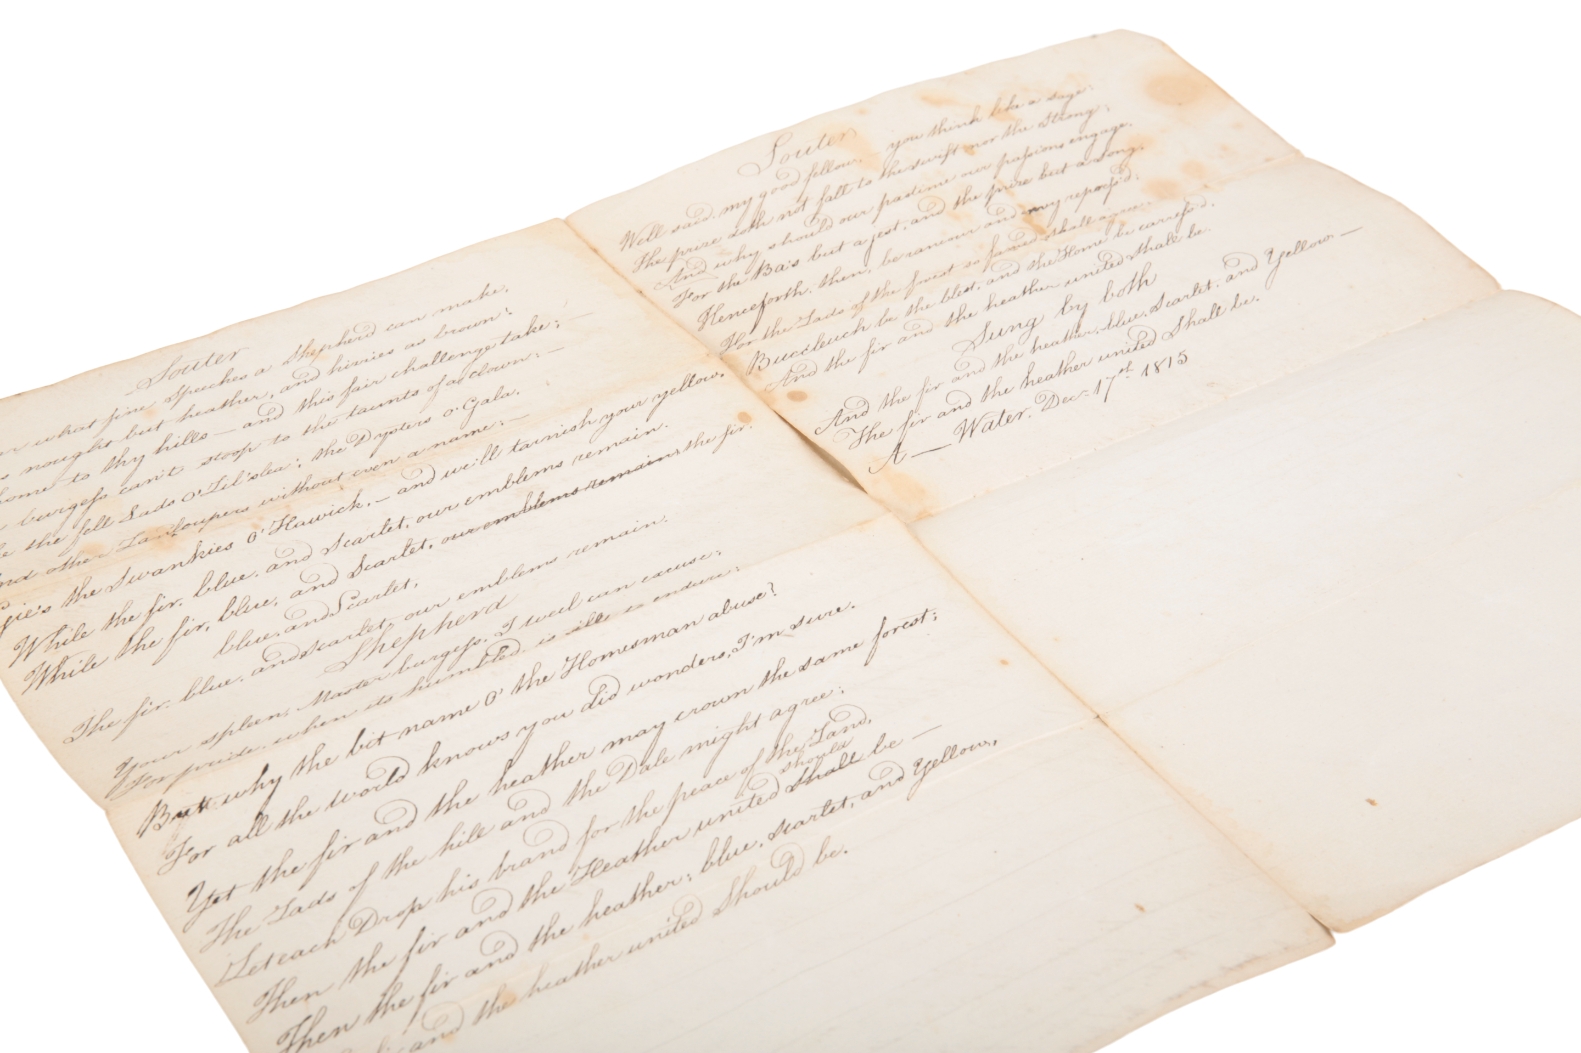 Souter
what fine Speeches a Shepherd can make,
nought but heather, and hinnies as brown;
home to thy hills — and this fair challenge take; —
burgess can't stoop to the taunts of a clown; —
the fell Lads O' Sel'slea; the Dysters o' Gala,
and other Landloupers without even a name; —
the Swankies O' Hawick, — and we'll tarnish your yellow,
While the fir, blue, and Scarlet, our emblems remain.
While the fir, blue, and Scarlet, our emblems remain, the fir,
blue, and Scarlet,
The fir, blue, and scarlet, our emblems remain.
Shepherd
Your spleen, Master burgess, I weel can excuse;
For pride, when its humbled, is ill to endure;
But why the bit name O' the Homesman abuse?
For all the world knows you did wonders, I'm sure.
Yet the fir and the heather may crown the same forest;
The Lads of the hill and the Dale might agree;
Let each Drop his brand for the peace of the Land,
should
Then the fir and the Heather united shall be —
Then the fir and the heather; blue, scarlet, and Yellow,
and the heather united Should be.
Souter
Well said, my good fellow, — you think like a sage;
The prize doth not fall to the swift nor the Strong;
And why should our pastime our passions engage,
For the Ba's but a jest, and the prize but a song.
Henceforth, then, be rancour and envy repress'd;
For the Lads of the forest so famed shall agree
Buccleuch be the blest, and the Home be caress'd,
And the fir and the heather united shall be.
Sung by both
And the fir and the heather, blue, Scarlet, and Yellow —
The fir and the heather united Shall be.
A — Water. Dec. 17th 1815